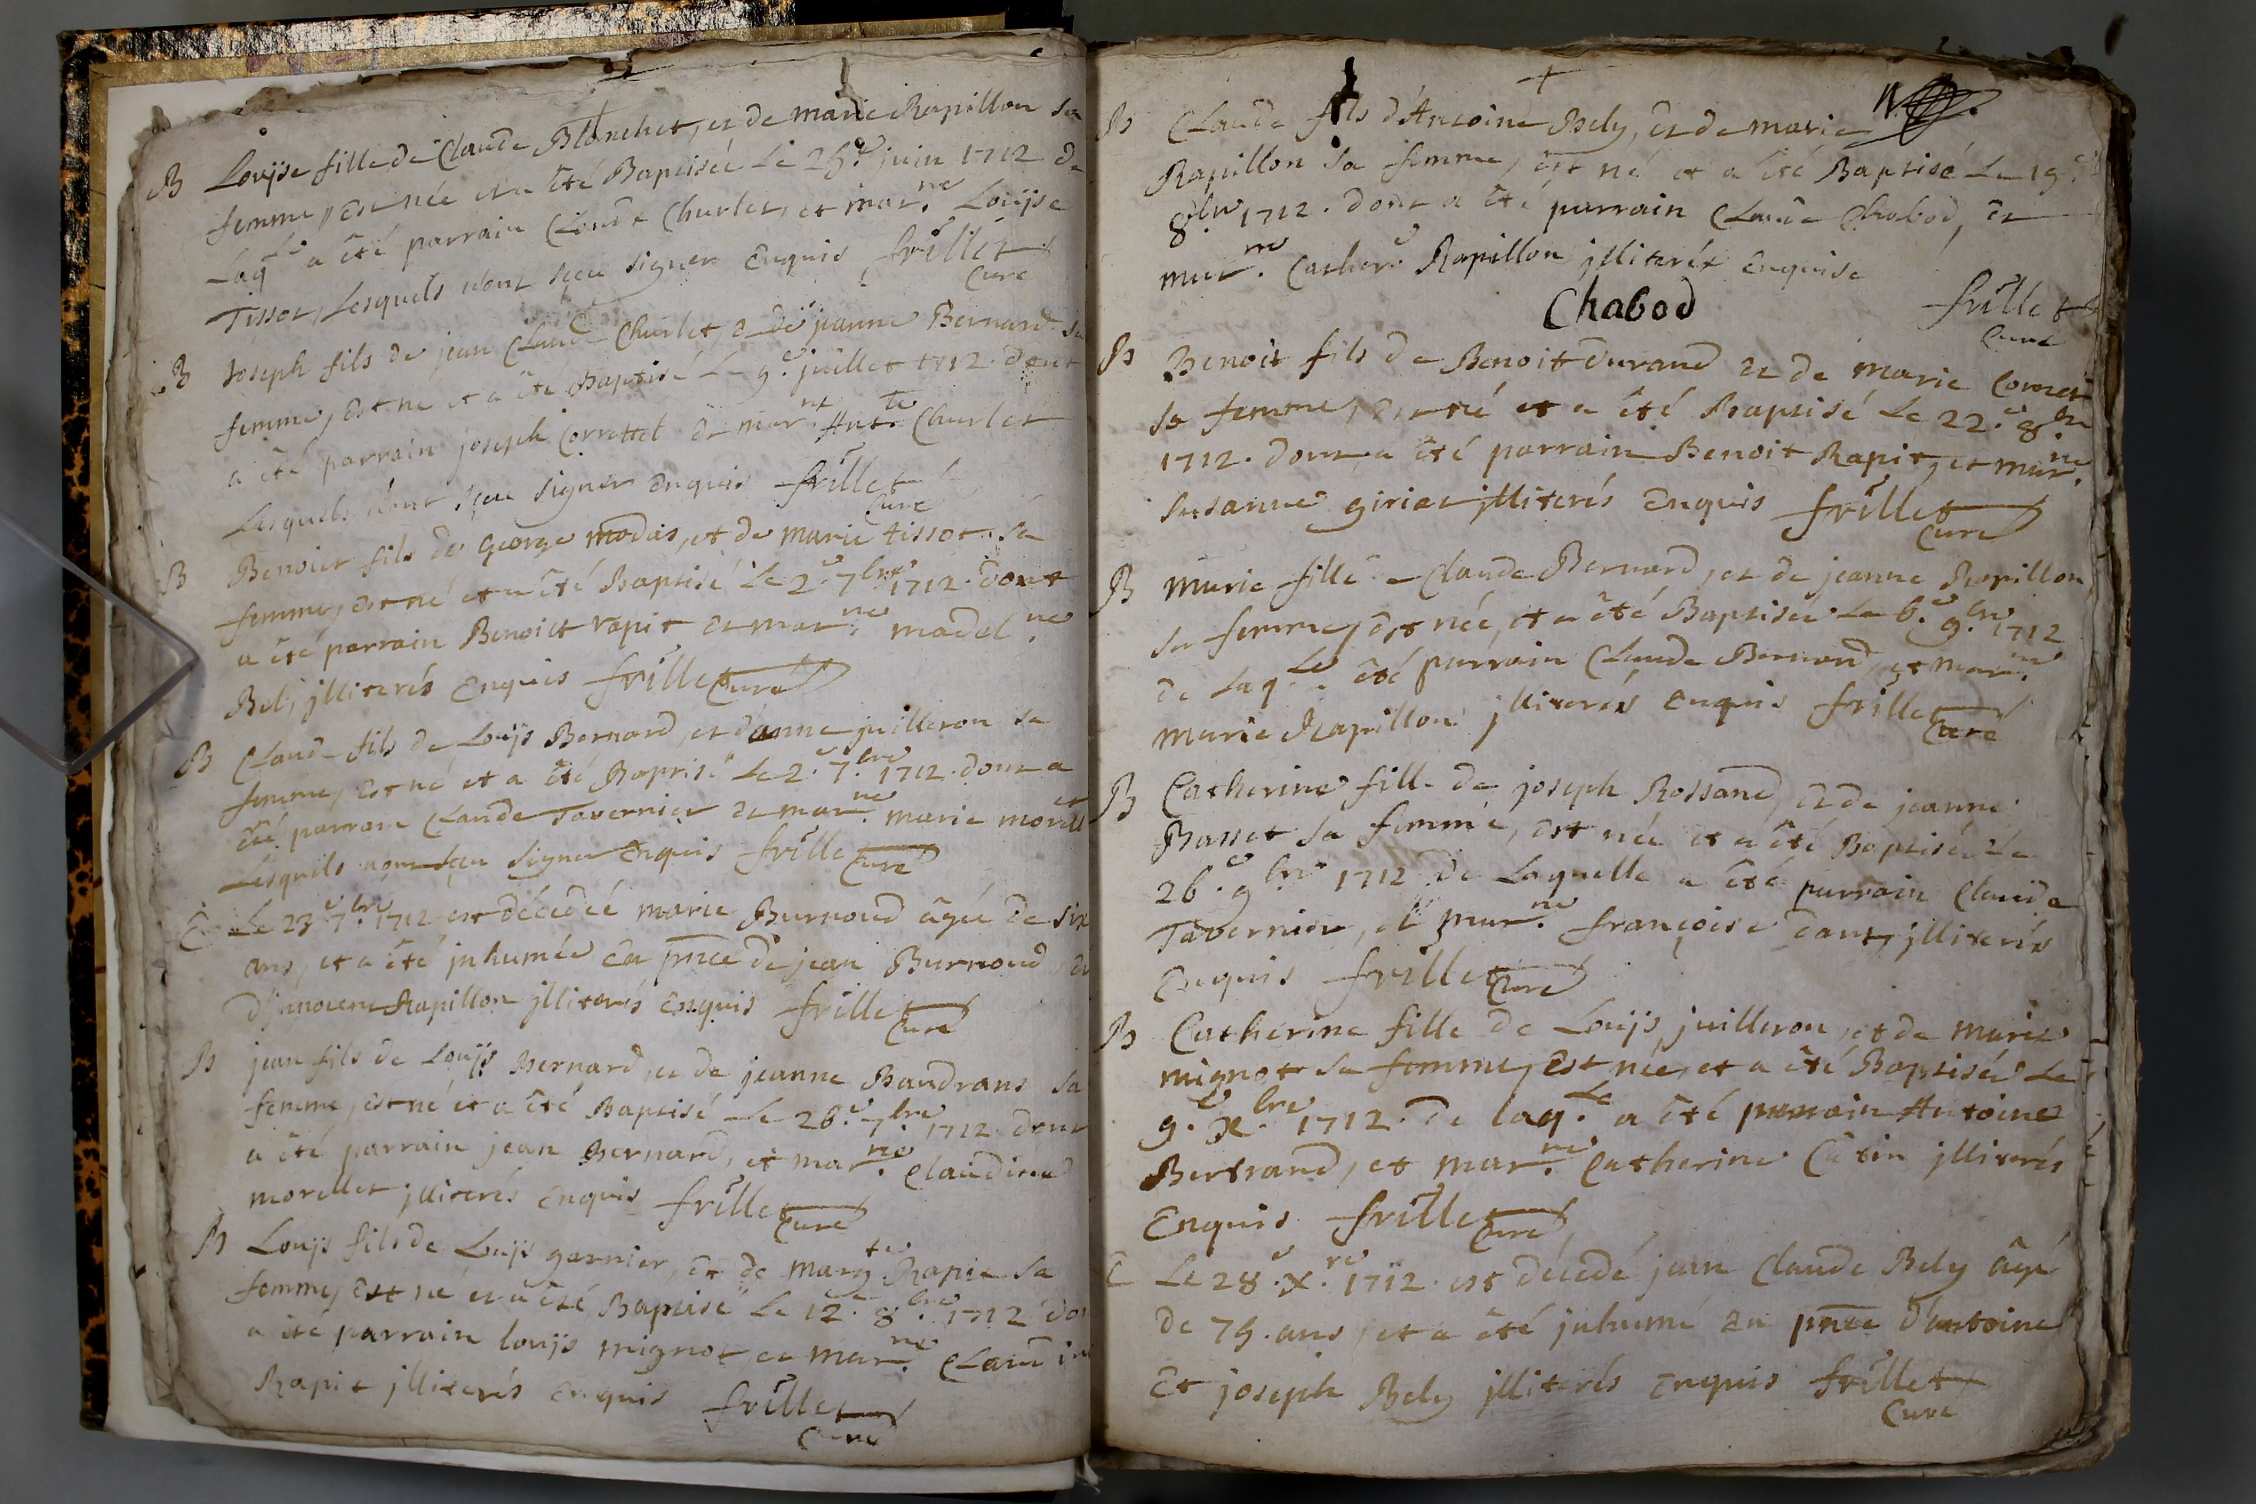 B Louÿse fille de Claude Blanchet, et de marie Rapillon sa
femme, est née et a êté Baptisée Le 25.e juin 1712 de
Laq.le a êté parrain Claude Churlet, et mar.ne Louÿse
Tissot, Lesquels n'ont sceu signer Enquis frillet
Curé
B Joseph fils de jean Claude Churlet, et de jeanne Bernard sa
femme, est né et a êté Baptisé Le 9.e juillet 1712. dont
a êté parrain joseph Correttel et mar.ne Ant.te Churlet
Lesquels n'ont sceu signer enquis frillet
Curé
B Benoict fils de George modas, et de marie tissot sa
femme, est né et a êté Baptisé Le 2.e 7.bre 1712. dont
a êté parrain Benoict rapit et mar.ne madel.ne
Beli, jlliterés Enquis frillet Curé
B Claude fils de Louÿs Bernard, et d'anne juilleron sa
femme, est né et a êté Baptisé Le 2.e 7.bre 1712. dont a
êté parrain Claude Tavernier et mar.ne marie morellet
Lesquels n'ont sceu signer Enquis frillet Curé
E Le 23.e 7.bre 1712 est décedée marie Burnoud âgée de six
ans, et a êté jnhumée En pnce de jean Burnoud, et
d'jnnocent Rapillon jlliterés Enquis frillet
Curé
B jean fils de Louÿs Bernard, et de jeanne Baudrans sa
femme, est né et a êté Baptisé Le 26.e 7.bre 1712. dont
a êté parrain jean Bernard, et mar.ne Claudine
morellet jlliterés Enquis frillet
Curé
B Louÿs fils de Louÿs garnier, et de marg.te Rapit sa
femme, est né et a êté Baptisé Le 12.e 8.bre 1712 don
a êté parrain louÿs mignot, et mar.ne Claudine
Rapit jlliterés Enquis frillet
Curé
B Claude fils d'Antoine Bely, et de marie
Rapillon sa femme, est né et a êté Baptisé Le 19.e
8.bre 1712. dont a êté parrain Claude Chabod, et
mar.ne Cather.e Rapillon jlliterée Enquise
Chabod frillet
Curé
B Benoit fils de Benoit durand et de marie Cornet
sa femme, est né et a êté Baptisé Le 22.e 8.bre
1712. dont a êté parrain Benoit Rapit, et mar.ne
susanne giriat jlliterés Enquis frillet
Curé
B marie fille de Claude Bernard, et de jeanne Rapillon
sa femme, est née, et a êté Baptisée Le 6.e 9.bre 1712
de Laq.le a êté parrain Claude Bernard, et mar.ne
marie Rapillon jlliterés Enquis frillet
Curé
B Catherine fille de joseph Rossand, et de jeanne
Basset sa femme, est née et a êté Baptisée Le
26.e 9.bre 1712 de Laquelle a êté parrain Claude
Tavernier, et mar.ne françoise dant, jlliterés
Enquis frillet Curé
B Catherine fille de Louÿs juilleron, et de marie
mignot sa femme, Est née, et a êté Baptisée Le
9.e X.bre 1712. de laq.le a êté parrain Antoine
Bertrand, et mar.ne Catherine Catin jlliterés
Enquis frillet Curé
E Le 28.e X.re 1712. est décedé jean Claude Bely âgé
de 75. ans, et a êté jnhumé En pnce d'antoine
Et joseph Bely jlliterés Enquis frillet
Curé